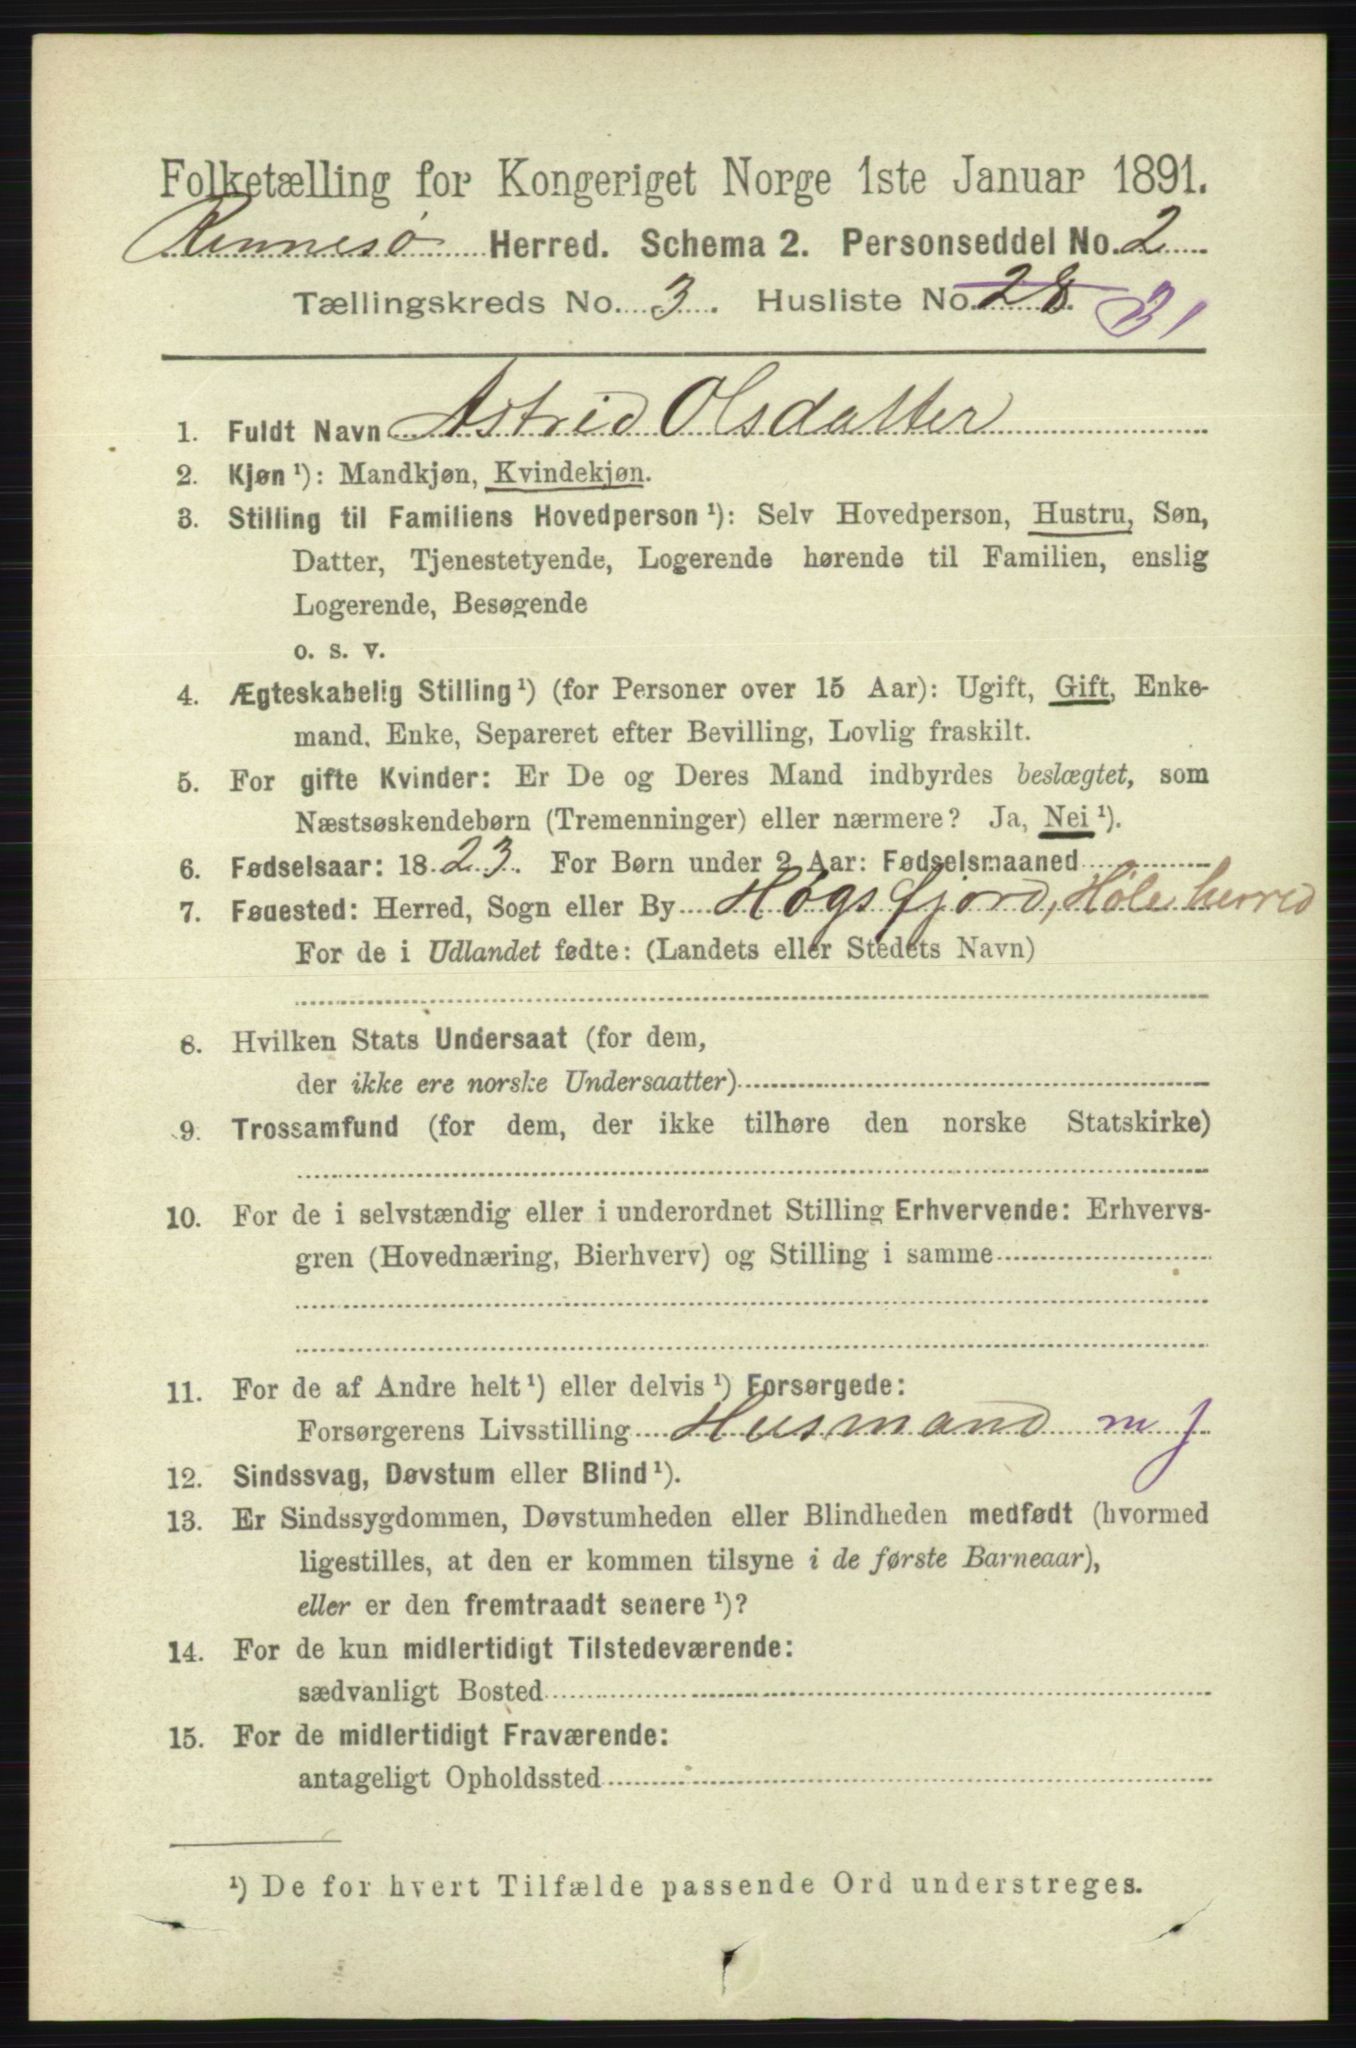 Folketælling for Kongeriget Norge 1ste Januar 1891.
Rennesø Herred. Schema 2. Personseddel No. 2
Tællingskreds No. 3. Husliste No. 28. 31
1. Fuldt Navn Astrid Olsdatter
2. Kjøn¹): Mandkjøn, Kvindekjøn.
3. Stilling til Familiens Hovedperson¹): Selv Hovedperson, Hustru, Søn,
Datter, Tjenestetyende, Logerende hørende til Familien, enslig
Logerende, Besøgende
o. s. v.
4. Ægteskabelig Stilling¹) (for Personer over 15 Aar): Ugift, Gift, Enke-
mand, Enke, Separeret efter Bevilling, Lovlig fraskilt.
5. For gifte Kvinder: Er De og Deres Mand indbyrdes beslægtet, som
Næstsøskendebørn (Tremenninger) eller nærmere? Ja, Nei¹).
6. Fødselsaar: 1823. For Børn under 2 Aar: Fødselsmaaned
7. Fødested: Herred, Sogn eller By Høgsfjord, Høle herred
For de i Udlandet fødte: (Landets eller Stedets Navn)
8. Hvilken Stats Undersaat (for dem,
der ikke ere norske Undersaatter)
9. Trossamfund (for dem, der ikke tilhøre den norske Statskirke)
10. For de i selvstændig eller i underordnet Stilling Erhvervende: Erhvervs-
gren (Hovednæring, Bierhverv) og Stilling i samme
11. For de af Andre helt¹) eller delvis¹) Forsørgede:
Forsørgerens Livsstilling Husmand m j
12. Sindssvag, Døvstum eller Blind¹).
13. Er Sindssygdommen, Døvstumheden eller Blindheden medfødt (hvormed
ligestilles, at den er kommen tilsyne i de første Barneaar),
eller er den fremtraadt senere¹)?
14. For de kun midlertidigt Tilstedeværende:
sædvanligt Bosted
15. For de midlertidigt Fraværende:
antageligt Opholdssted
¹) De for hvert Tilfælde passende Ord understreges.